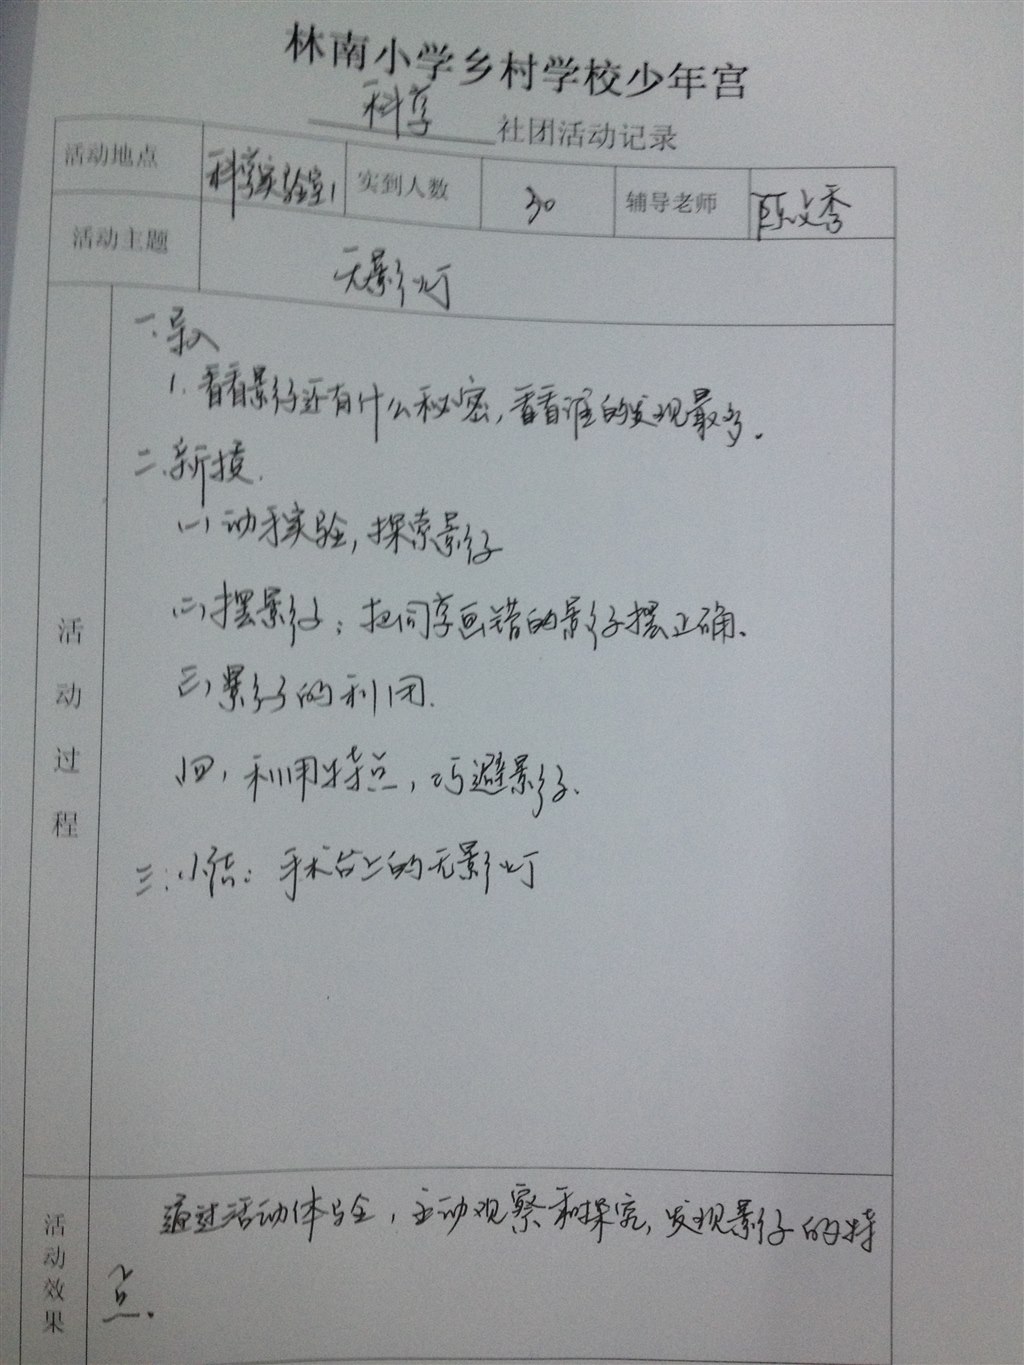 林南小学乡村学校少年宫
科学 社团活动记录
活动地点 科学实验室1 实到人数 30 辅导老师 陈文秀
活动主题 无影灯
一、导入
1. 看看影子还有什么秘密,看看谁的发现最多.
二、新授.
(一) 动手实验,探索影子
(二) 摆影子:把同学画错的影子摆正确.
(三) 影子的利用.
(四) 利用特点,巧避影子.
三:小结:手术台上的无影灯
活动过程
通过活动体验,主动观察和探究,发现影子的特
点.
活动效果